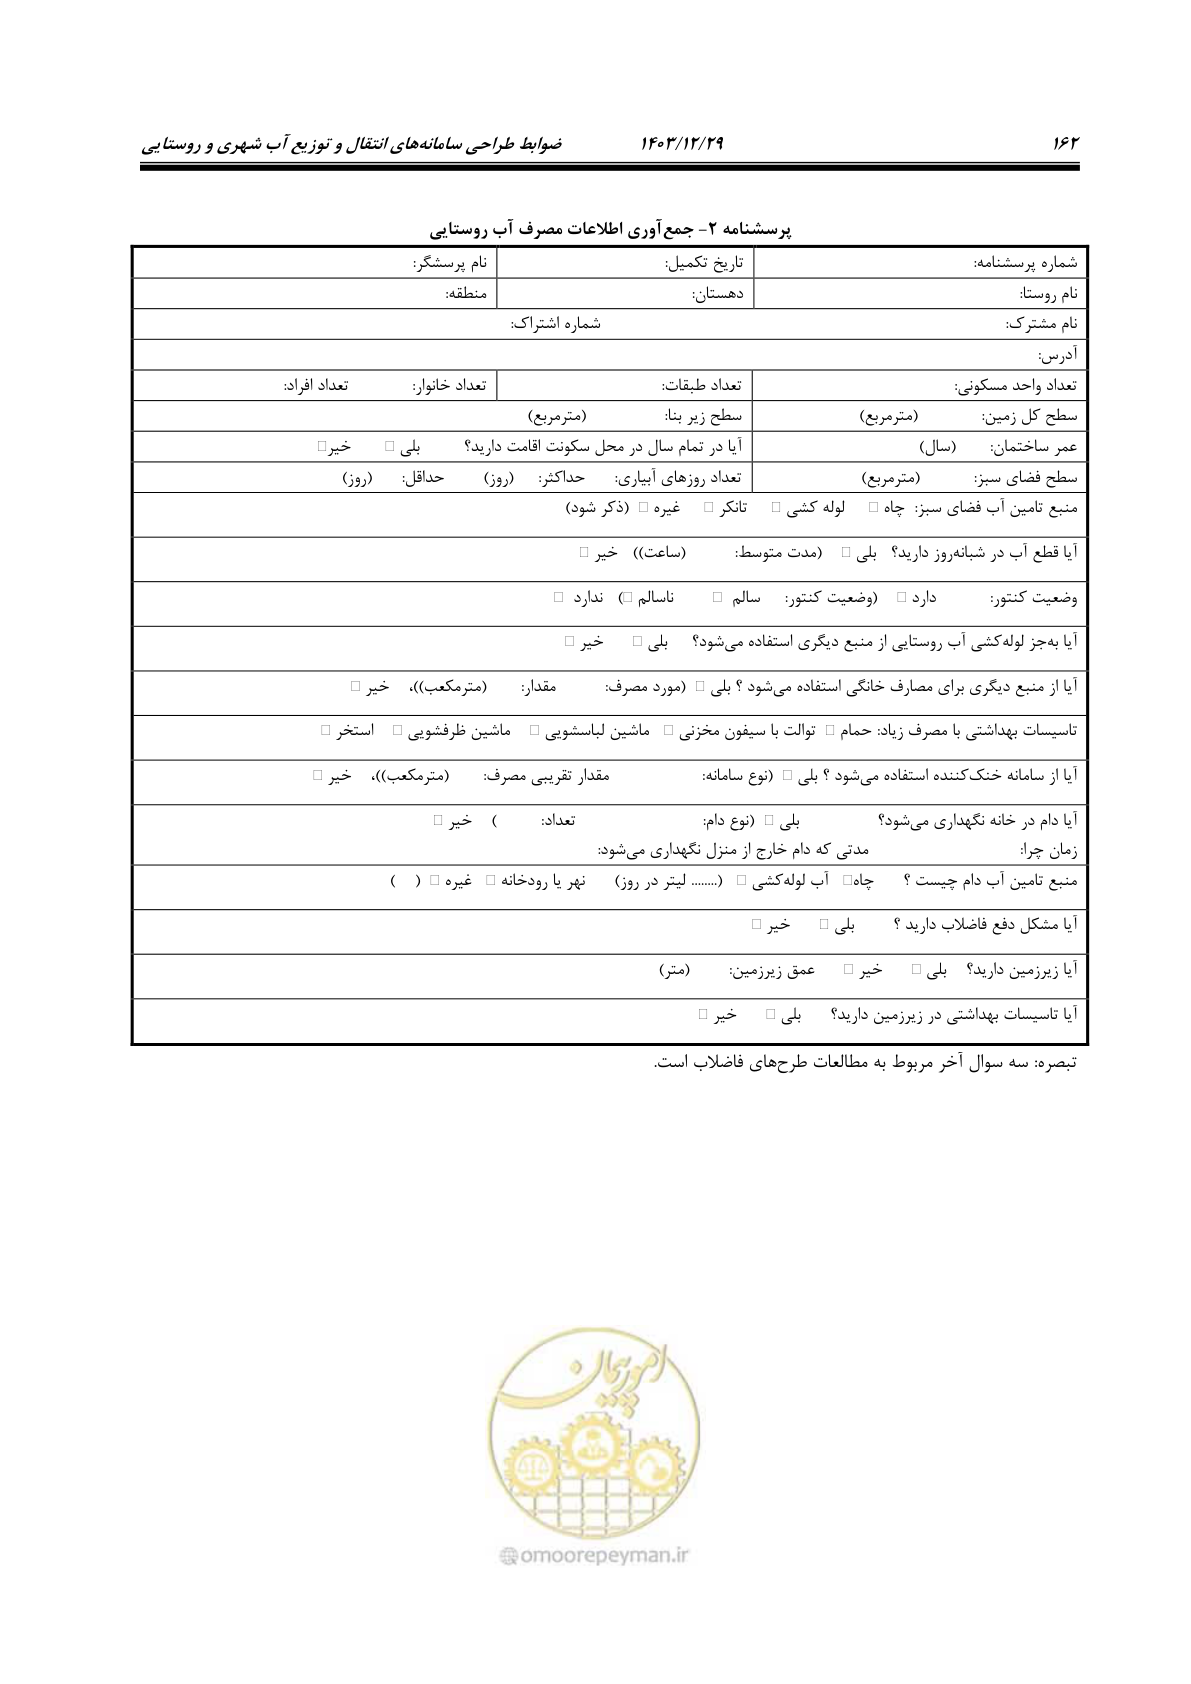 ۱۶۲ ۱۴۰۳/۱۲/۲۹ ضوابط طراحی سامانه‌های انتقال و توزیع آب شهری و روستایی
پرسشنامه ۲- جمع‌آوری اطلاعات مصرف آب روستایی
شماره پرسشنامه: تاریخ تکمیل: نام پرسشگر:
نام روستا: دهستان: منطقه:
نام مشترک: شماره اشتراک:
آدرس:
تعداد واحد مسکونی: تعداد طبقات: تعداد خانوار: تعداد افراد:
سطح کل زمین: (مترمربع) سطح زیر بنا: (مترمربع)
عمر ساختمان: (سال) آیا در تمام سال در محل سکونت اقامت دارید؟ بلی □ خیر□
سطح فضای سبز: (مترمربع) تعداد روزهای آبیاری: حداکثر: (روز) حداقل: (روز)
منبع تامین آب فضای سبز: چاه □ لوله کشی □ تانکر □ غیره □ (ذکر شود)
آیا قطع آب در شبانه‌روز دارید؟ بلی □ (مدت متوسط: (ساعت)) خیر □
وضعیت کنتور: دارد □ (وضعیت کنتور: سالم □ ناسالم □) ندارد □
آیا به‌جز لوله‌کشی آب روستایی از منبع دیگری استفاده می‌شود؟ بلی □ خیر □
آیا از منبع دیگری برای مصارف خانگی استفاده می‌شود ؟ بلی □ (مورد مصرف: مقدار: (مترمکعب))، خیر □
تاسیسات بهداشتی با مصرف زیاد: حمام □ توالت با سیفون مخزنی □ ماشین لباسشویی □ ماشین ظرفشویی □ استخر □
آیا از سامانه خنک‌کننده استفاده می‌شود ؟ بلی □ (نوع سامانه: مقدار تقریبی مصرف: (مترمکعب))، خیر □
آیا دام در خانه نگهداری می‌شود؟ بلی □ (نوع دام: تعداد: ) خیر □
زمان چرا: مدتی که دام خارج از منزل نگهداری می‌شود:
منبع تامین آب دام چیست ؟ چاه□ آب لوله‌کشی □ (........ لیتر در روز) نهر یا رودخانه □ غیره □ ( )
آیا مشکل دفع فاضلاب دارید ؟ بلی □ خیر □
آیا زیرزمین دارید؟ بلی □ خیر □ عمق زیرزمین: (متر)
آیا تاسیسات بهداشتی در زیرزمین دارید؟ بلی □ خیر □
تبصره: سه سوال آخر مربوط به مطالعات طرح‌های فاضلاب است.
امور پیمان
@omoorepeyman.ir